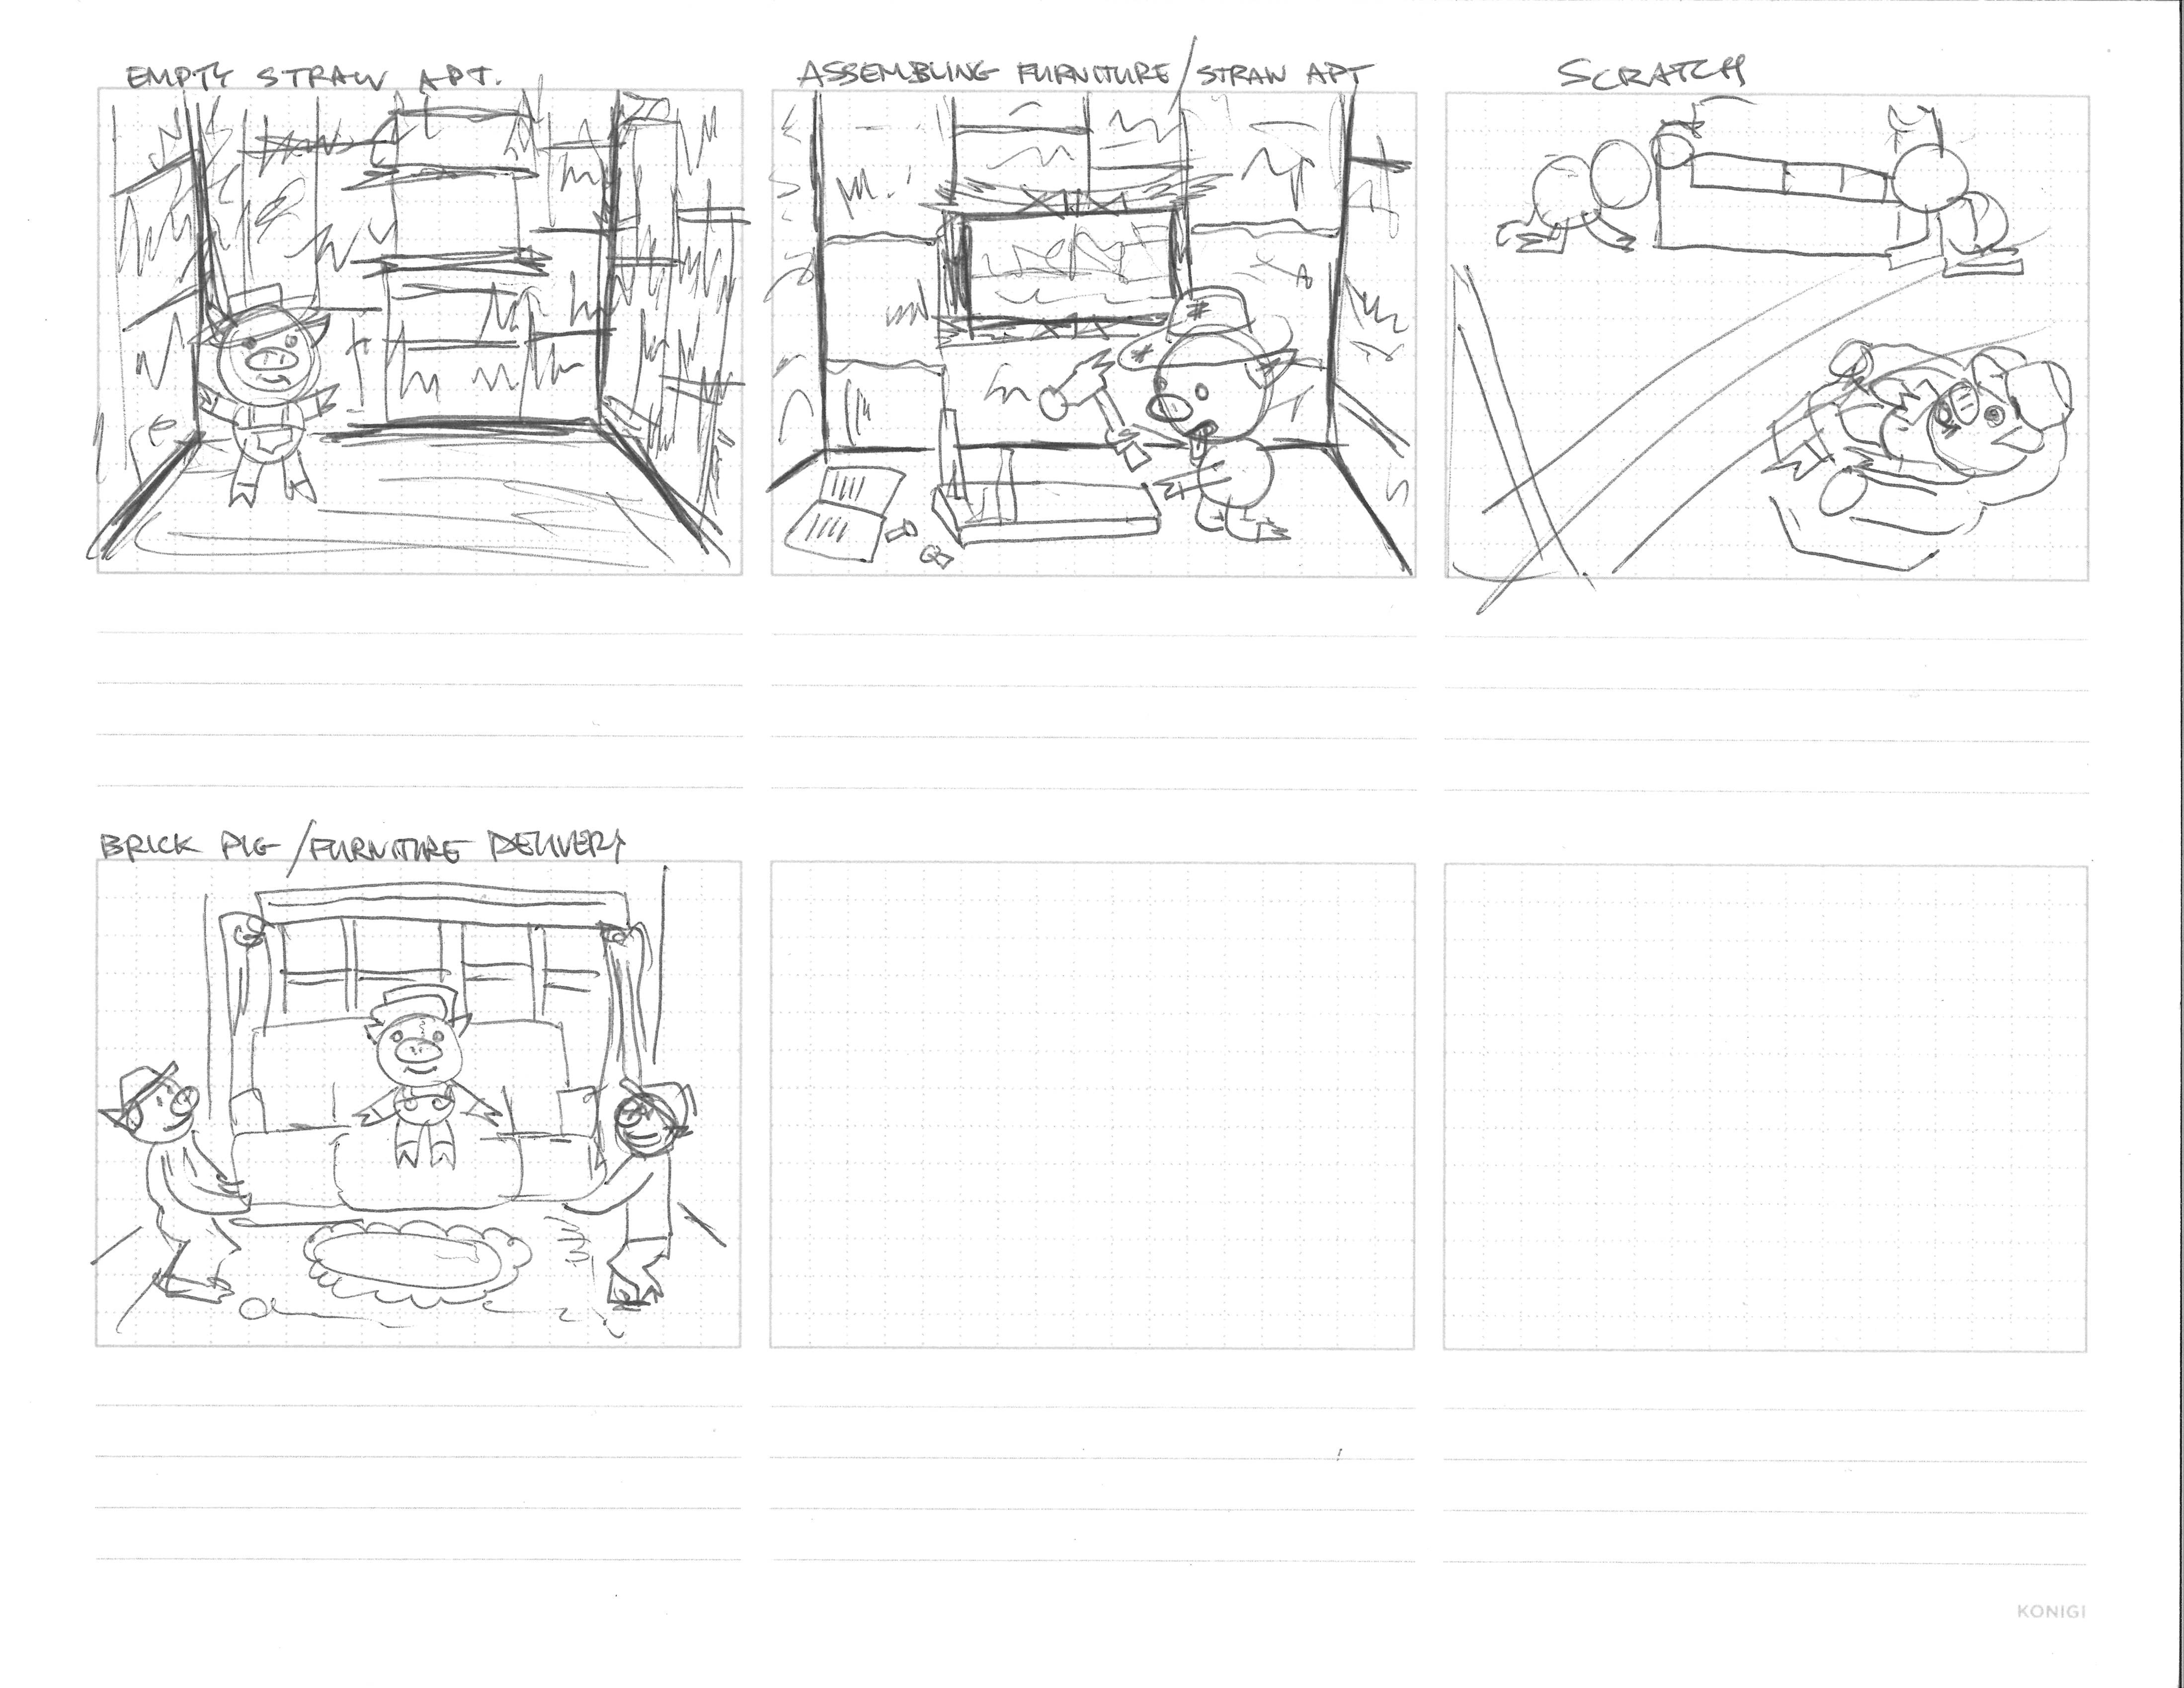 EMPTY STRAW APT.
ASSEMBLING FURNITURE/STRAW APT
SCRATCH
BRICK PIG/FURNITURE DELIVERY
KONIGI